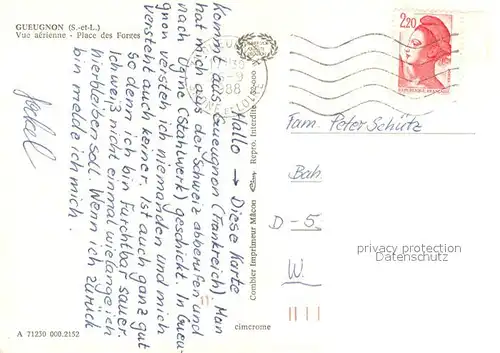 GUEUGNON (S.-et-L.)
Vue aérienne - Place des Forges
Hallo → Diese Karte
kommt aus Gueugnon (Frankreich) Man
hat mich aus der Schweiz abberufen und
nach Ugine (Stahlwerk) geschickt. In Gueu-
gnon versteh ich niemanden und mich
versteht auch keiner. Ist auch ganz gut
so denn ich bin Furchtbar sauer.
Ich weiß nicht einmal wielange ich
hierbleiben soll. Wenn ich zurück
bin melde ich mich.
Combier Imprimeur Mâcon
Repro. Interdite
2,20
REPUBLIQUE FRANÇAISE
88
Fam. Peter Schütz
Bah
D - 5
W.
privacy protection
Datenschutz
A 71230 000.2152
cimcrome